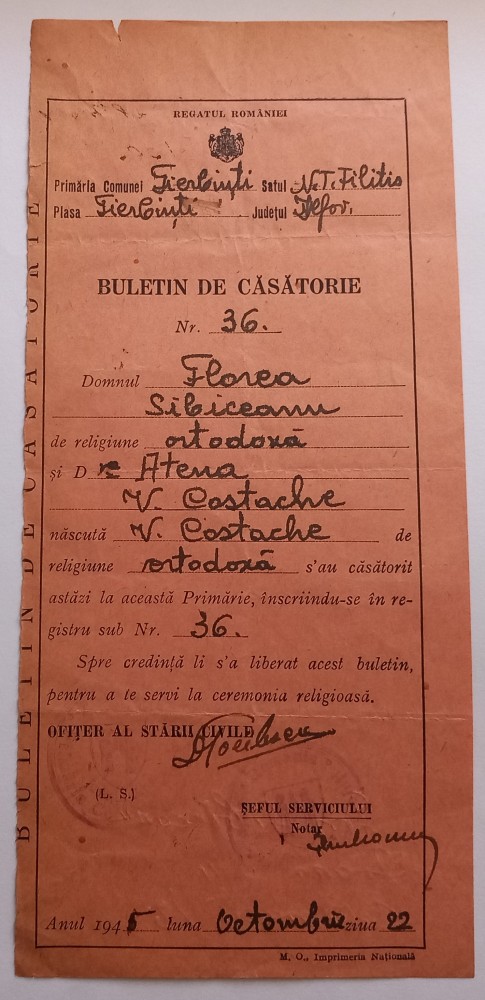 REGATUL ROMÂNIEI
Primăria Comunei Fierbinți Satul N.T. Filitis
Plasa Fierbinți Județul Ilfov.
BULETIN DE CĂSĂTORIE
Nr. 36.
Domnul Florea
Sibiceanu
de religiune ortodoxă
și D ra Atena
V. Costache
născută V. Costache de
religiune ortodoxă s'au căsătorit
astăzi la această Primărie, înscriindu-se în re-
gistru sub Nr. 36.
Spre credință li s'a liberat acest buletin,
pentru a te servi la ceremonia religioasă.
OFIȚER AL STĂRII CIVILE
(L. S.)
ȘEFUL SERVICIULUI
Notar
Anul 1945 luna Octombrie ziua 22
M. O., Imprimeria Națională
BULETIN DE CĂSĂTORIE